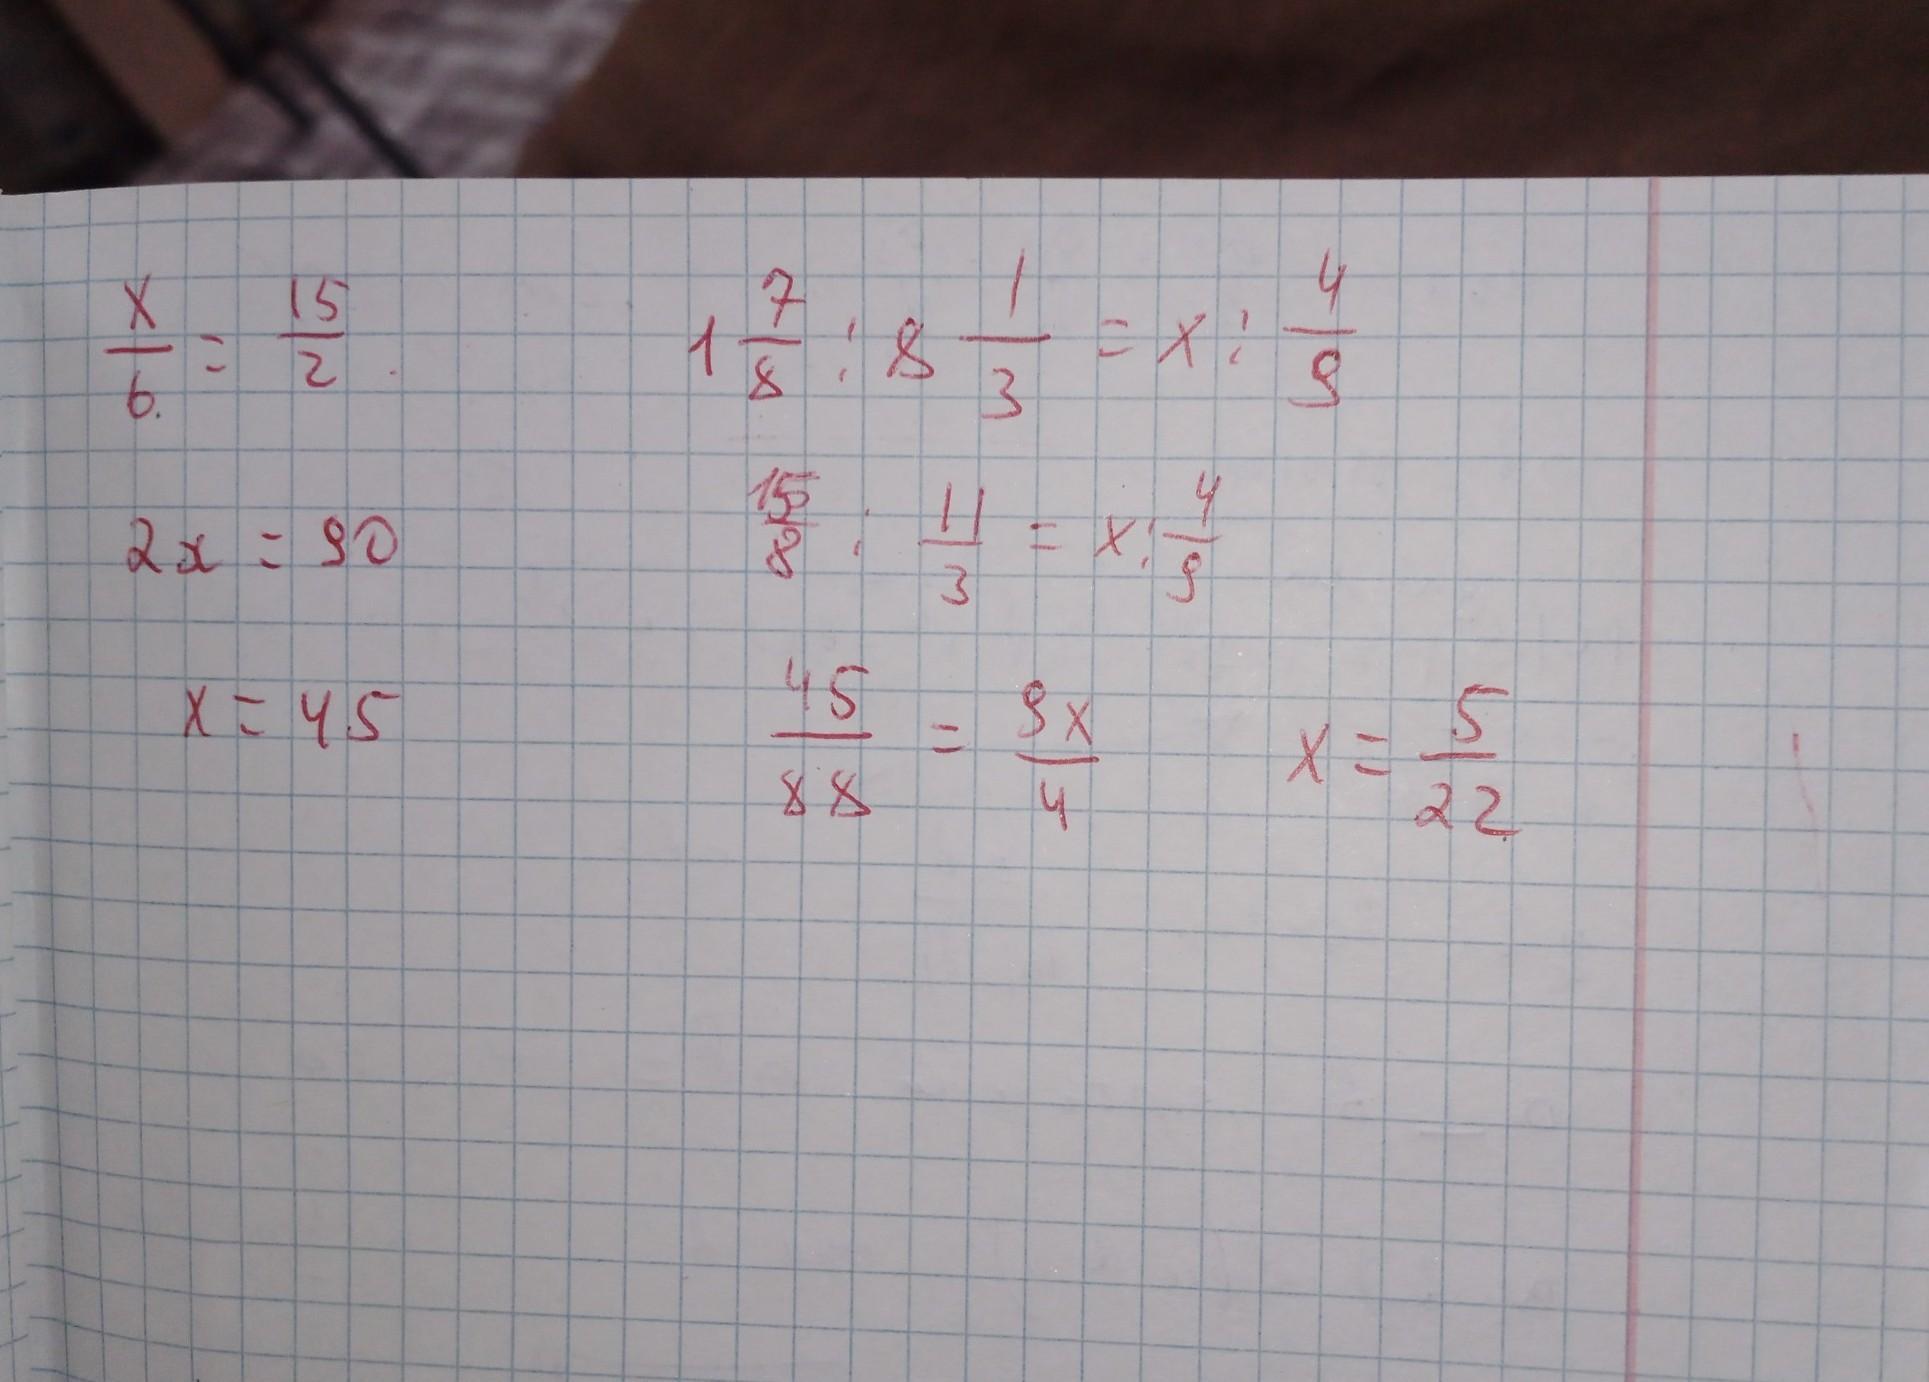 x/6 = 15/2
2x = 90
x = 45
1 7/8 : 8 1/3 = x : 4/9
15/8 : 11/3 = x : 4/9
45/88 = 9x/4 x = 5/22